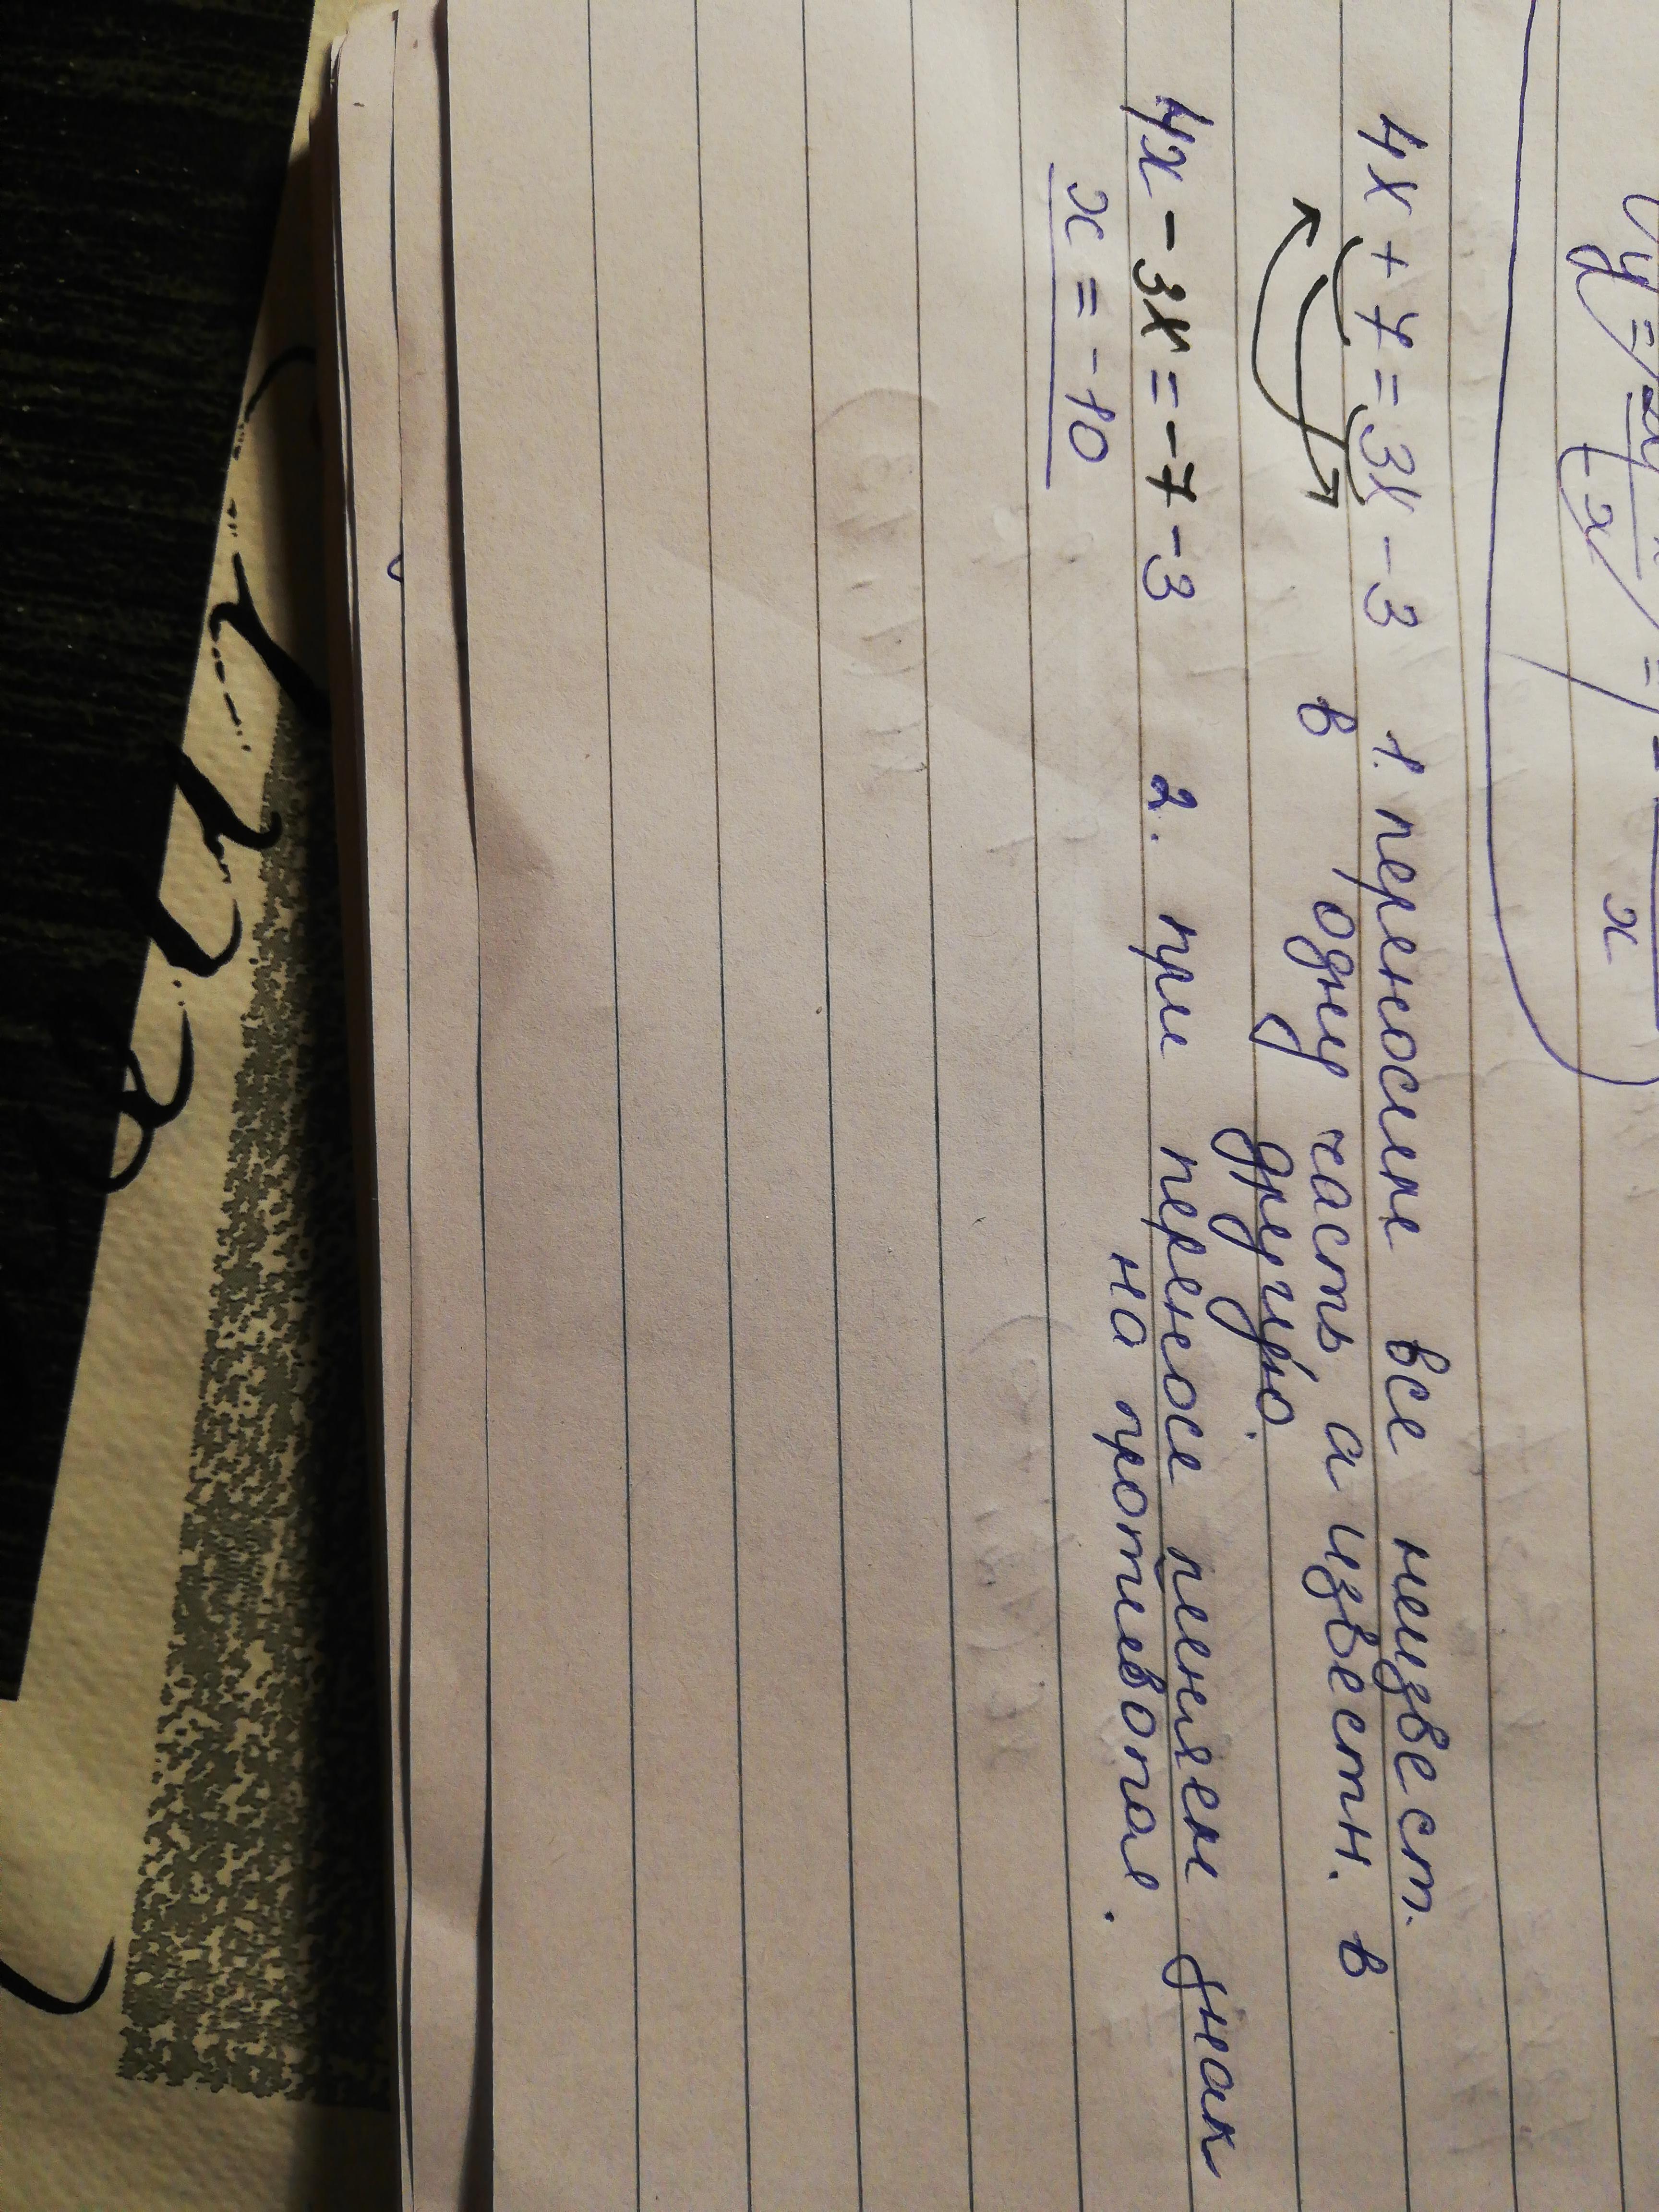 4x + 7 = 3x - 3 1. переносим все неизвест.
в одну часть, а известн. в
другую.
4x - 3x = -7 - 3 2. при переносе меняем знак
x = -10 на противопол.